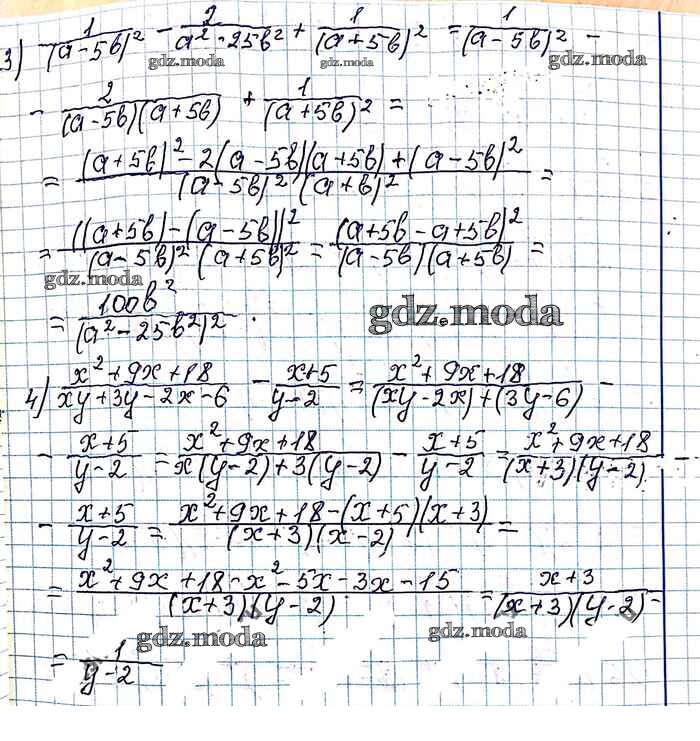 3) 1/(a-5b)² - 2/a²-25b² + 1/(a+5b)² = 1/(a-5b)² -
gdz.moda gdz.moda gdz.moda
- 2/(a-5b)(a+5b) + 1/(a+5b)² =
= (a+5b)²-2(a-5b)(a+5b)+(a-5b)²/(a-5b)²(a+b)² =
= ((a+5b)-(a-5b))²/(a-5b)²(a+5b)² = (a+5b-a+5b)²/(a-5b)(a+5b) =
gdz.moda
= 100b²/(a²-25b²)².
gdz.moda
4) x²+9x+18/xy+3y-2x-6 - x+5/y-2 = x²+9x+18/(xy-2x)+(3y-6) -
- x+5/y-2 = x²+9x+18/x(y-2)+3(y-2) - x+5/y-2 = x²+9x+18/(x+3)(y-2) -
- x+5/y-2 = x²+9x+18-(x+5)(x+3)/(x+3)(x-2) =
= x²+9x+18-x²-5x-3x-15/(x+3)(y-2) = x+3/(x+3)(y-2) =
gdz.moda gdz.moda
= 1/y-2